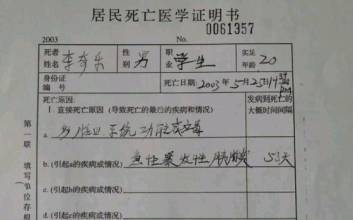 居民死亡医学证明书
0061357
2003
死者姓名 李奇乐 性别 男 职业 学生 实足年龄 20
身份证编号 死亡日期 2003年5月25日
死亡原因: 发病到死亡的
1.直接死亡原因 (导致死亡的最后的疾病和情况) 大概时间间隔
a. 多脏器系统功能衰竭
b. (引起a的疾病或情况) 急性暴发性胰腺炎 5天
c. (引起b的疾病或情况)
d. (引起c的疾病或情况)
第一联 填写单位存根